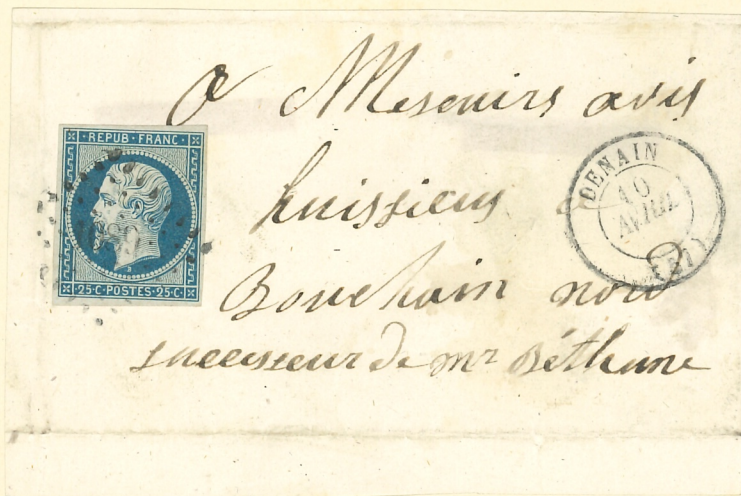 REPUB·FRANC·
25·C·POSTES·25·C·
a Mesenirs avis
huissiens
Bouchain nord
successeur de mr Béthune
DENAIN
10
AVRIL
(57)